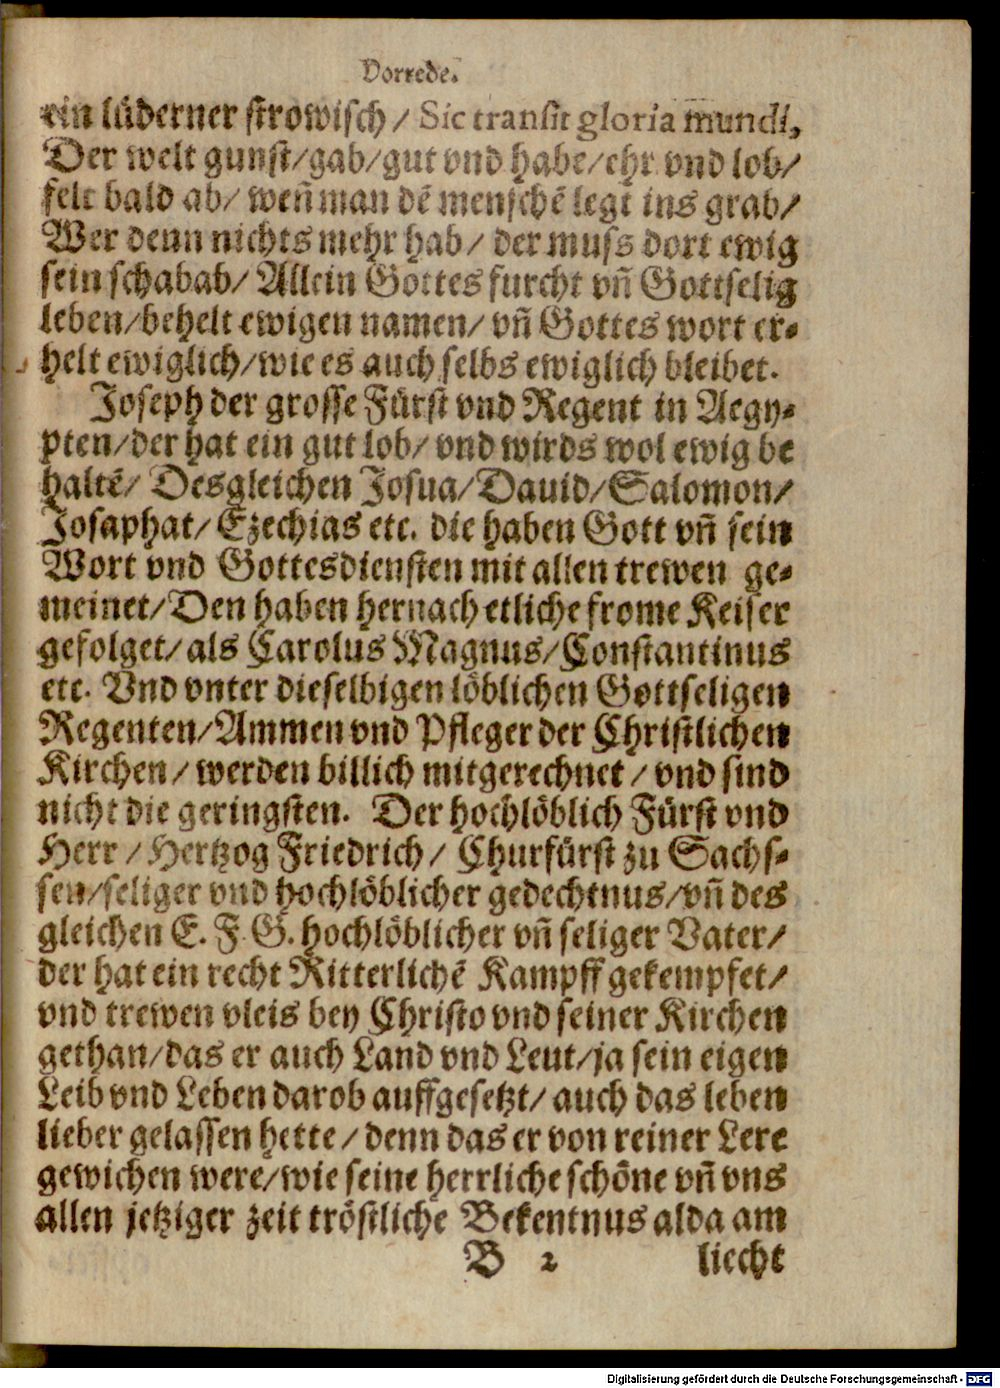 Vorrede.
ein lüderner strowisch / Sic transit gloria mundi,
Der welt gunst/gab/gut vnd habe/ehr vnd lob/
felt bald ab/ weñ man dē menschē legt ins grab/
Wer denn nichts mehr hab/ der muss dort ewig
sein schabab/ Allein Gottes furcht vñ Gottselig
leben/behelt ewigen namen/ vñ Gottes wort er-
helt ewiglich/wie es auch selbs ewiglich bleibet.
Joseph der grosse Fürst vnd Regent in Aegy-
pten/der hat ein gut lob/ vnd wirds wol ewig be
haltē/ Desgleichen Josua/Dauid/Salomon/
Josaphat/ Ezechias etc. die haben Gott vñ sein
Wort vnd Gottesdiensten mit allen trewen ge-
meinet/Den haben hernach etliche frome Keiser
gefolget/ als Carolus Magnus/Constantinus
etc. Vnd vnter dieselbigen löblichen Gottseligen
Regenten/Ammen vnd Pfleger der Christlichen
Kirchen/ werden billich mitgerechnet / vnd sind
nicht die geringsten. Der hochlöblich Fürst vnd
Herr / Hertzog Friedrich/ Churfürst zu Sachs-
sen/seliger vnd hochlöblicher gedechtnus/vñ des
gleichen E. F. G. hochlöblicher vñ seliger Vater/
der hat ein recht Ritterlichē Kampff gekempfet/
vnd trewen vleis bey Christo vnd seiner Kirchen
gethan/das er auch Land vnd Leut/ja sein eigen
Leib vnd Leben darob auffgesetzt/ auch das leben
lieber gelassen hette / denn das er von reiner Lere
gewichen were/wie seine herrliche schöne vñ vns
allen jetziger zeit tröstliche Bekentnus alda am
B 2 liecht
Digitalisierung gefördert durch die Deutsche Forschungsgemeinschaft - DFG